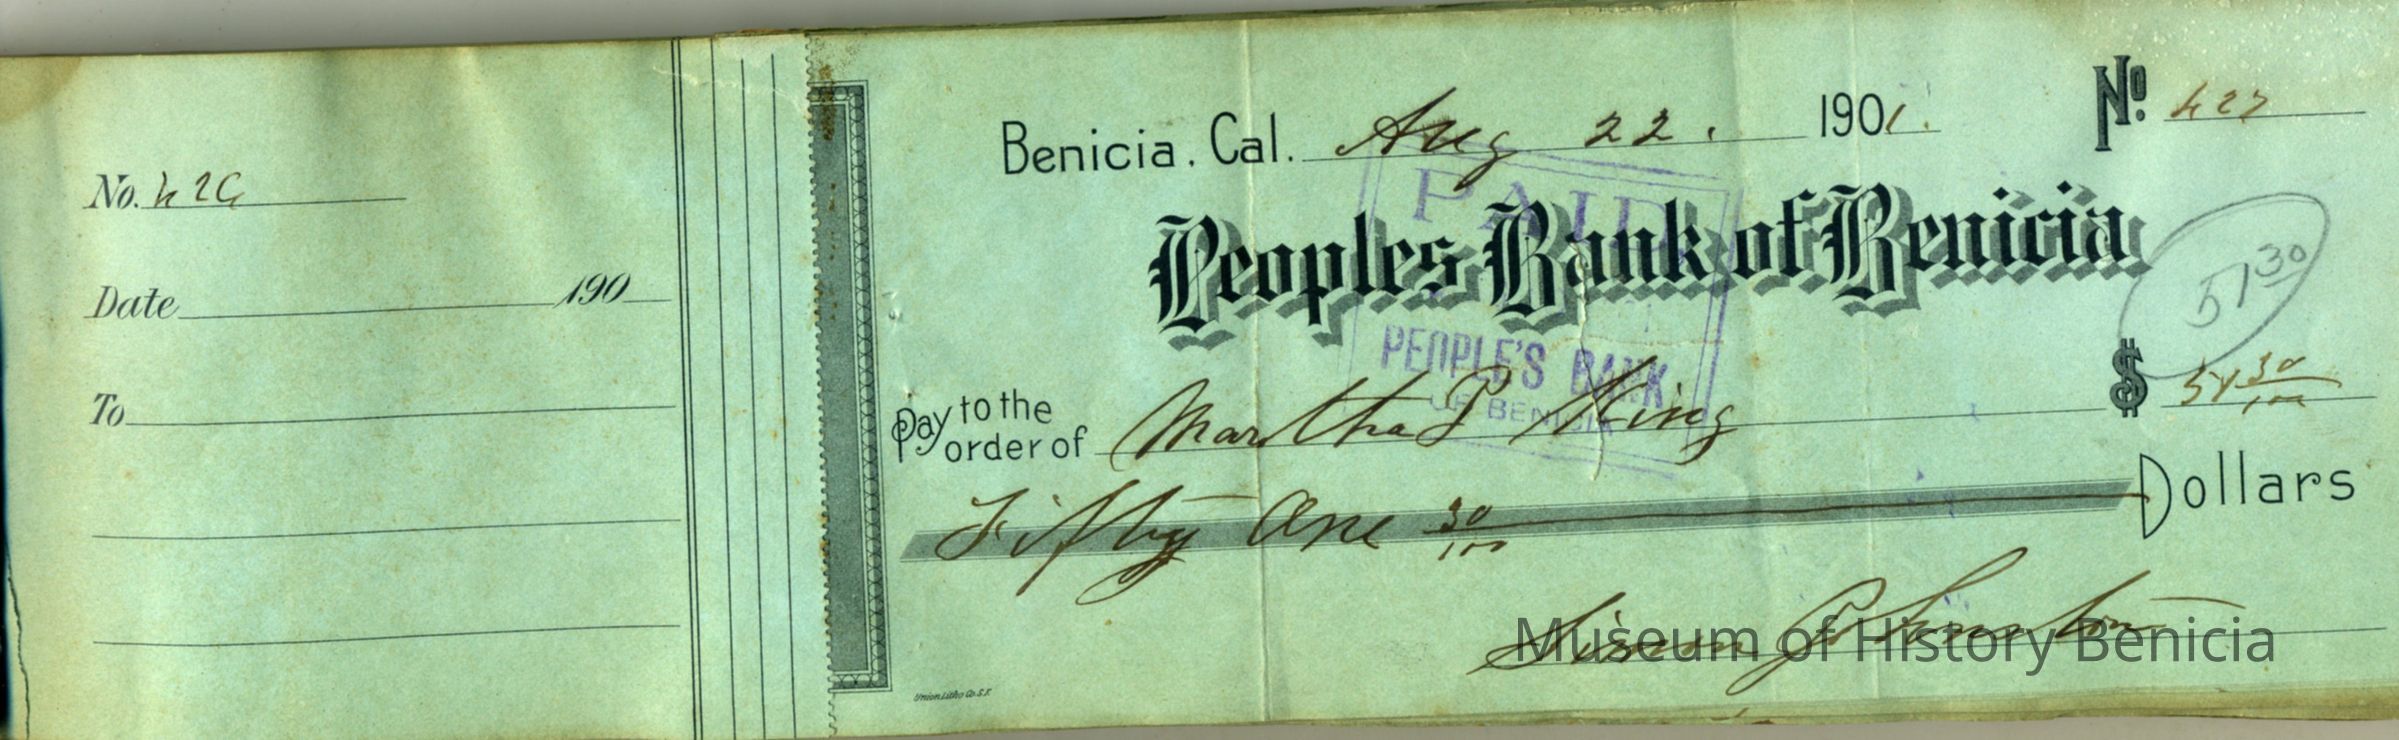 No. 429
Date 190
To
Benicia, Cal. Aug 22. 1901.
No. 427
PAID
Peoples Bank of Benicia
51 30
PEOPLE'S BANK
OF BENICIA
Pay to the order of Martha P King
$ 51 30/100
Fifty One 30/100 Dollars
Simon Johnston
Museum of History Benicia
Union Litho Co. S.F.